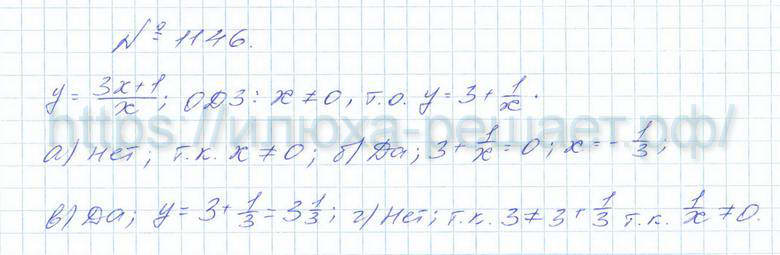 № 1146.
y = (3x+1)/x; ОДЗ: x ≠ 0, т.о. y = 3 + 1/x.
https://илюха-решает.рф/
а) Нет; т.к. x ≠ 0; б) Да; 3 + 1/x = 0; x = - 1/3;
в) Да; y = 3 + 1/3 = 3 1/3; г) Нет; т.к. 3 ≠ 3 + 1/3 т.к. 1/x ≠ 0.